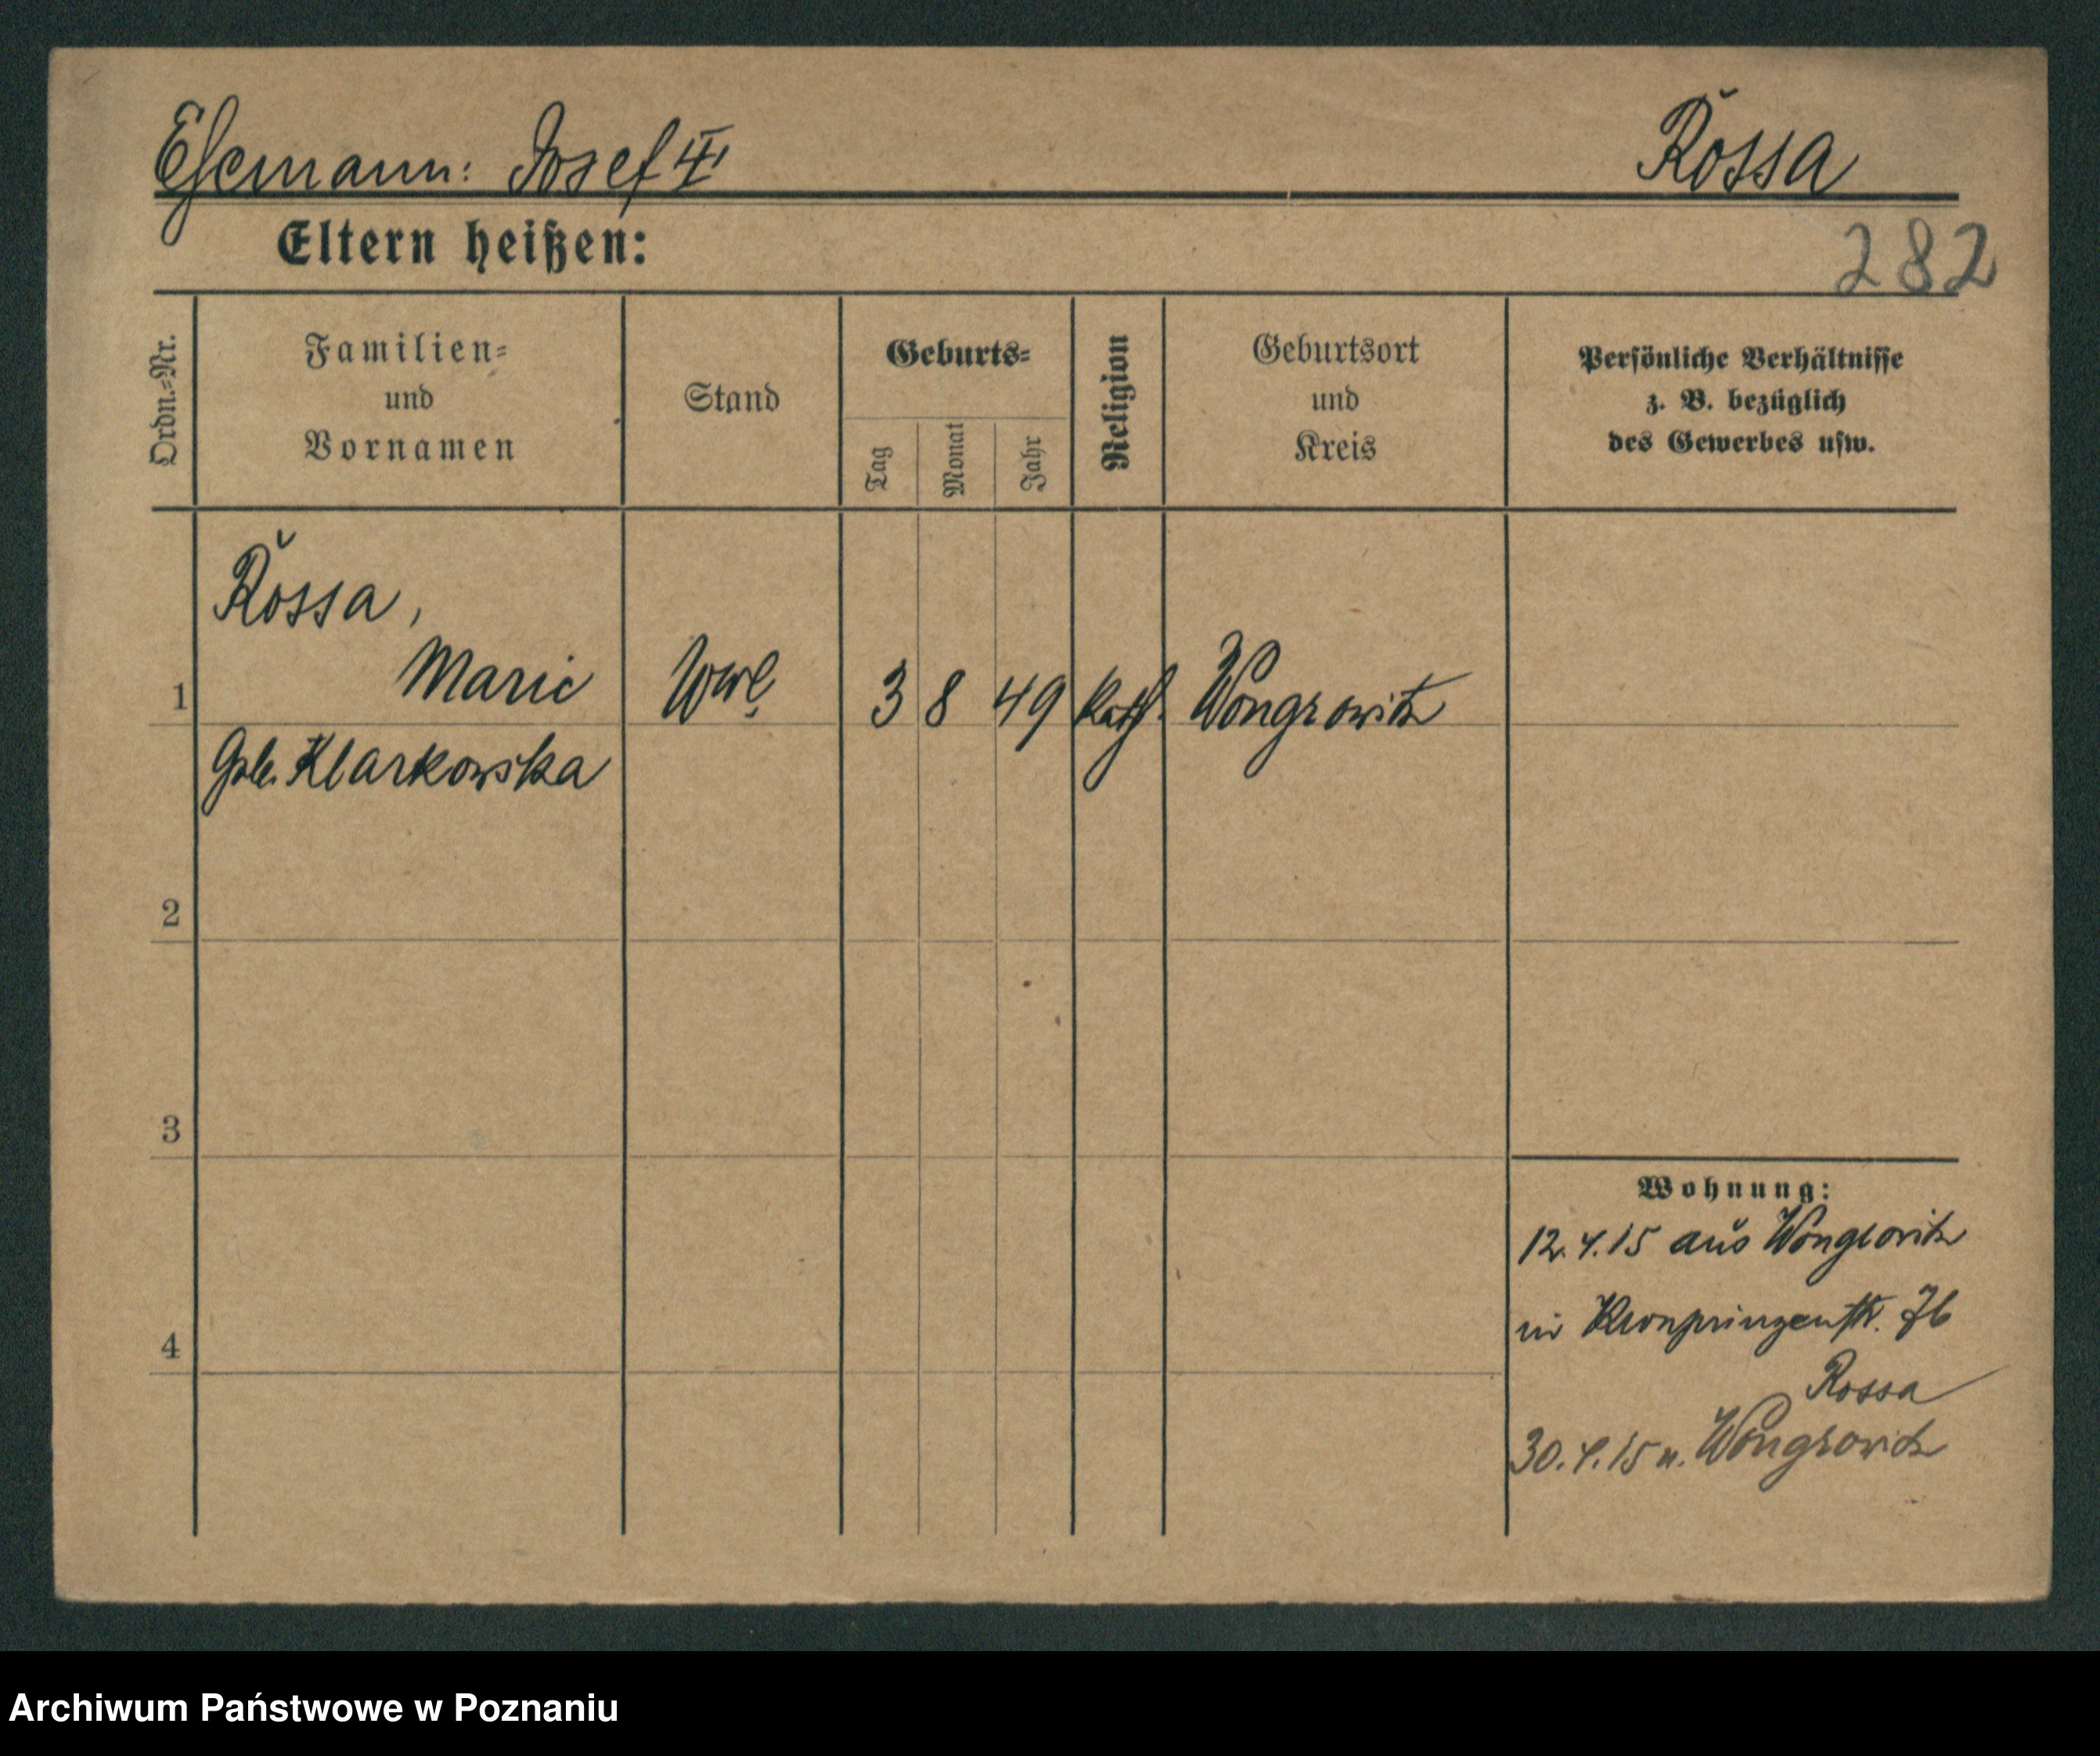 Ehemann: Josef II
Rossa
Eltern heißen:
282
Ordn.-Nr.
Familien-
und
Vornamen
Stand
Geburts-
Tag
Monat
Jahr
Religion
Geburtsort
und
Kreis
Persönliche Verhältnisse
z. B. bezüglich
des Gewerbes usw.
Rossa,
1 Marie 3 8 49 kath. Wongrowitz
Geb. Klarkowska
2
3
4
Wohnung:
12.4.15 aus Wongrowitz
in Kronprinzenstr. 76
Rossa
30.4.15 n. Wongrowitz
Archiwum Państwowe w Poznaniu